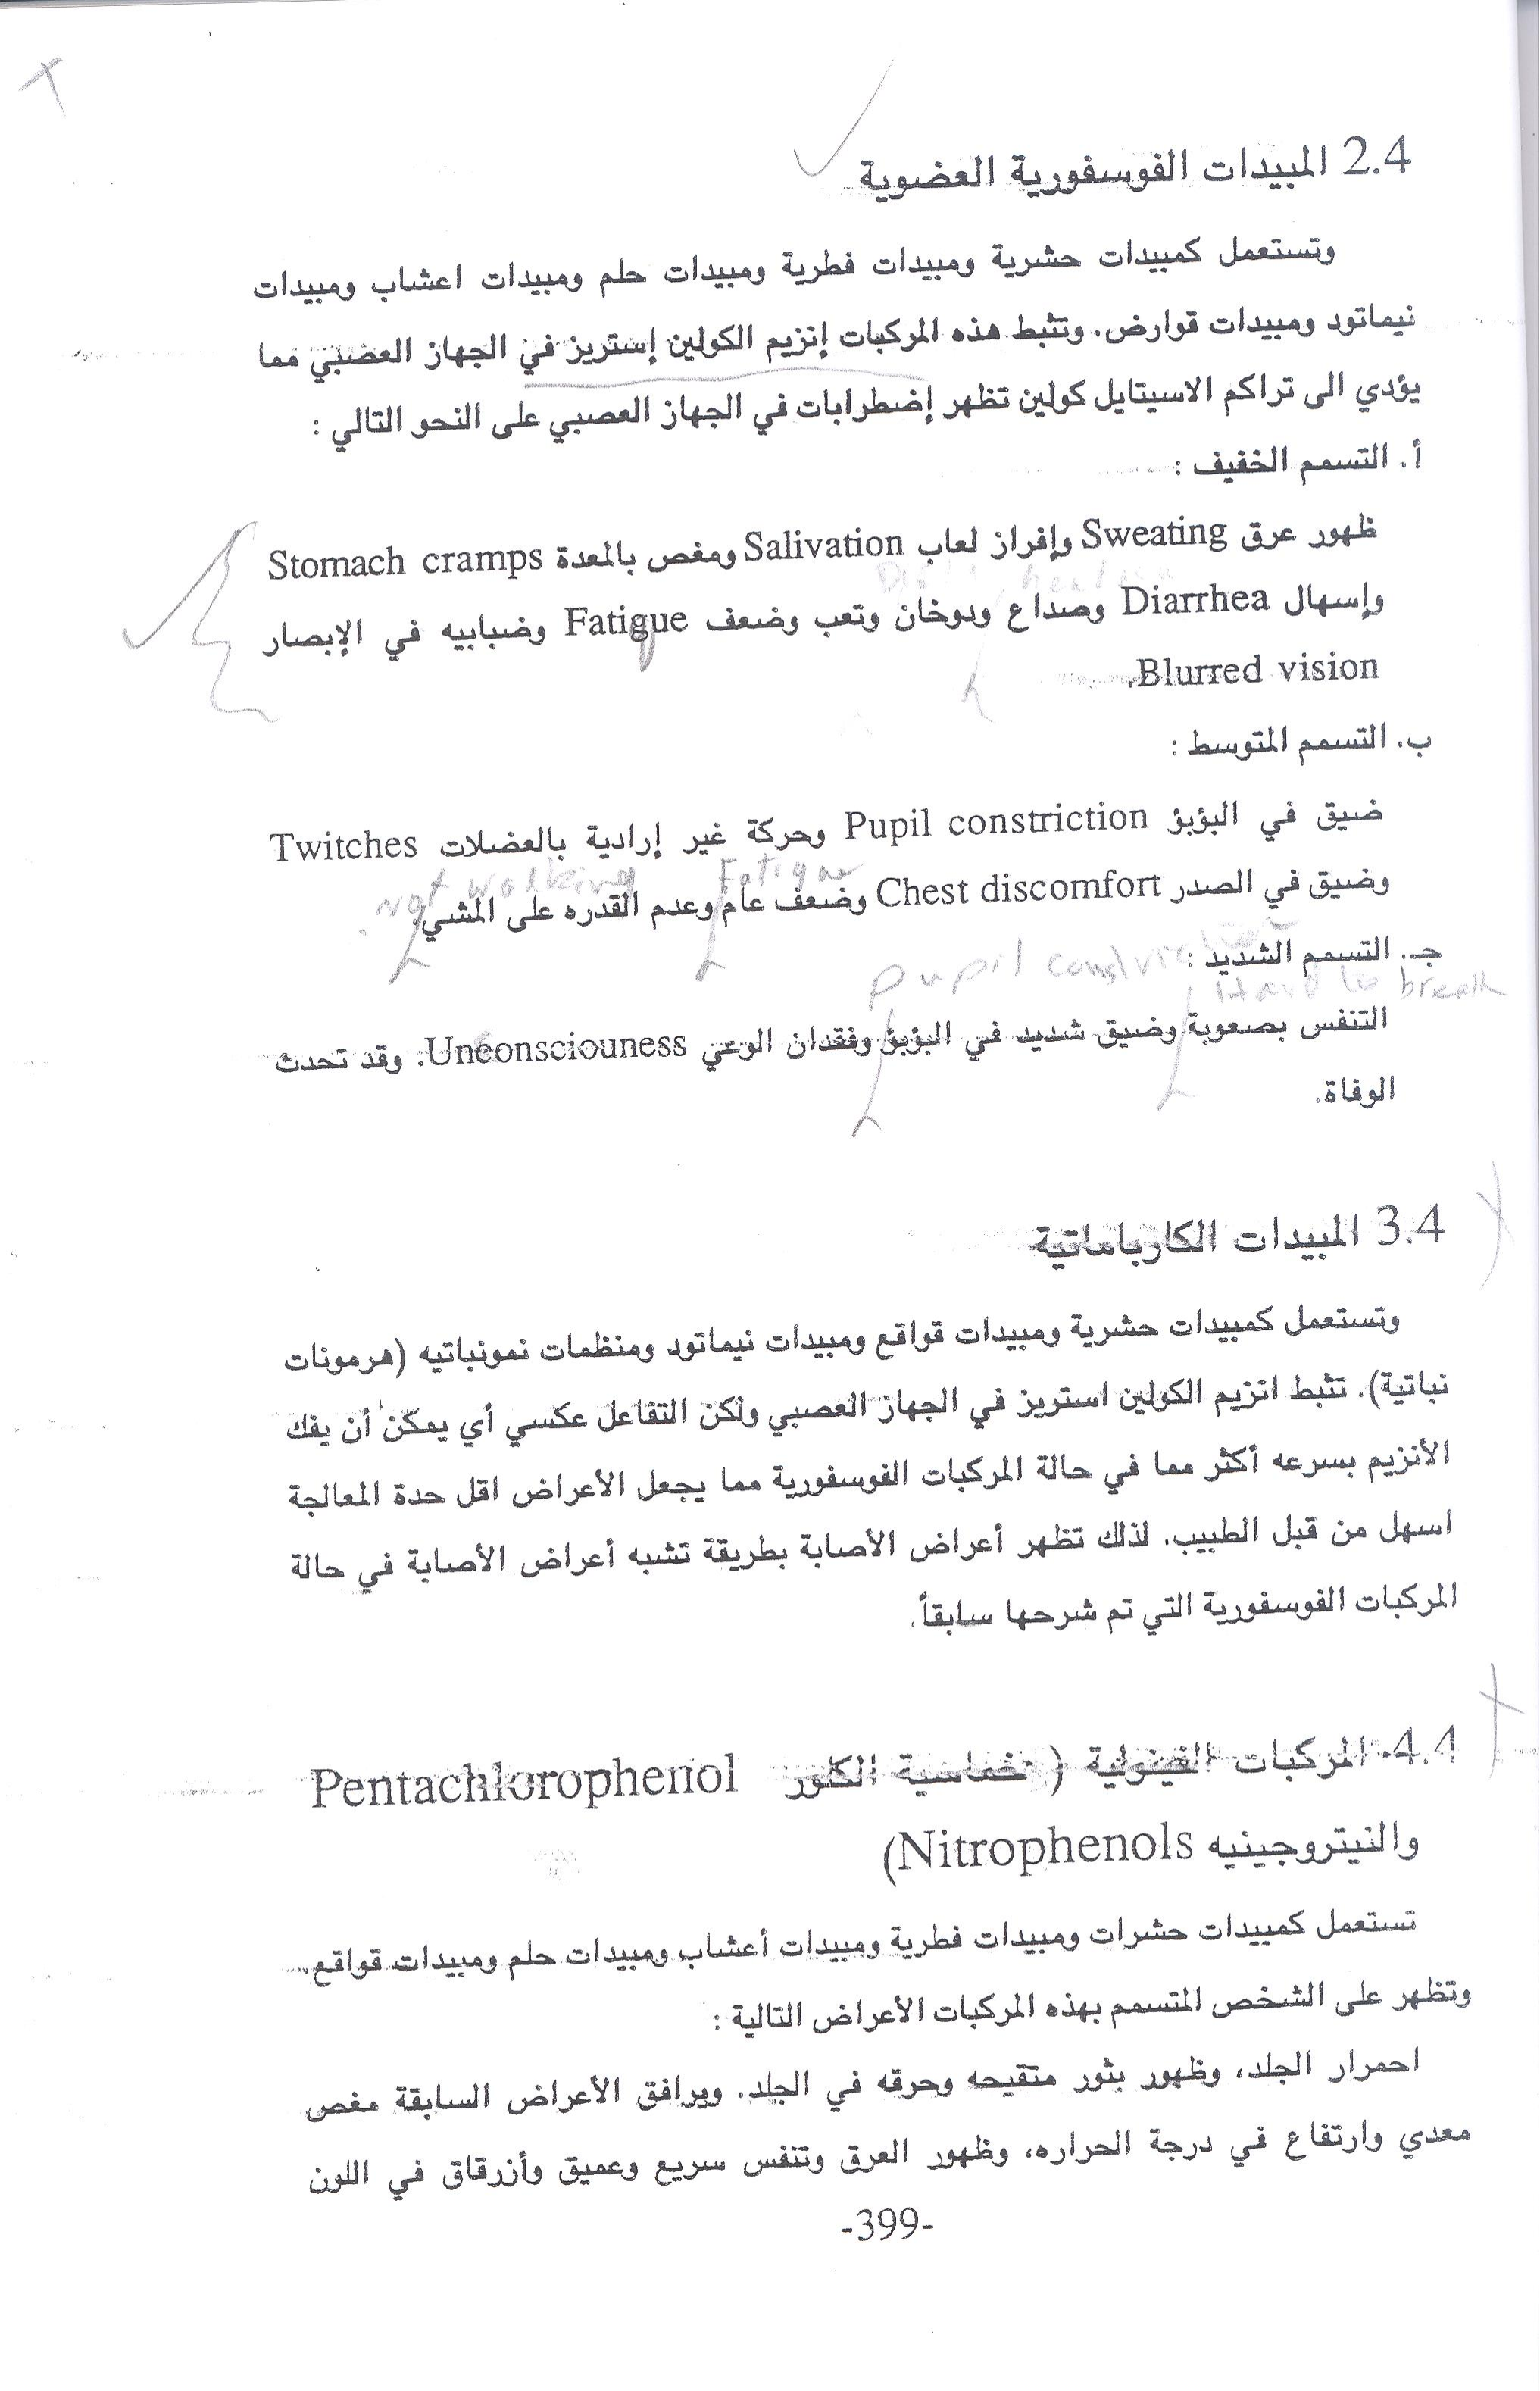 2.4 المبيدات الفوسفورية العضوية
وتستعمل كمبيدات حشرية ومبيدات فطرية ومبيدات حلم ومبيدات اعشاب ومبيدات
نيماتود ومبيدات قوارض. وتثبط هذه المركبات إنزيم الكولين إستريز في الجهاز العصبي مما
يؤدي الى تراكم الاسيتايل كولين تظهر إضطرابات في الجهاز العصبي على النحو التالي :
أ. التسمم الخفيف :
ظهور عرق Sweating وإفراز لعاب Salivation ومغص بالمعدة Stomach cramps
وإسهال Diarrhea وصداع ودوخان وتعب وضعف Fatigue وضبابيه في الإبصار
Blurred vision.
ب. التسمم المتوسط :
ضيق في البؤبؤ Pupil constriction وحركة غير إرادية بالعضلات Twitches
Fatigue not walking
وضيق في الصدر Chest discomfort وضعف عام وعدم القدره على المشي.
جـ. التسمم الشديد :
Hard to break pupil
التنفس بصعوبة وضيق شديد في البؤبؤ وفقدان الوعي Unconsciouness. وقد تحدث
الوفاة.
3.4 المبيدات الكارباماتية
وتستعمل كمبيدات حشرية ومبيدات قواقع ومبيدات نيماتود ومنظمات نمونباتيه (هرمونات
نباتية). تثبط انزيم الكولين استريز في الجهاز العصبي ولكن التفاعل عكسي أي يمكن أن يفك
الأنزيم بسرعه أكثر مما في حالة المركبات الفوسفورية مما يجعل الأعراض اقل حدة المعالجة
اسهل من قبل الطبيب. لذلك تظهر أعراض الأصابة بطريقة تشبه أعراض الأصابة في حالة
المركبات الفوسفورية التي تم شرحها سابقاً.
4.4 المركبات الفينولية ( خماسية الكلور Pentachlorophenol
والنيتروجينيه Nitrophenols)
تستعمل كمبيدات حشرات ومبيدات فطرية ومبيدات أعشاب ومبيدات حلم ومبيدات قواقع.
وتظهر على الشخص المتسمم بهذه المركبات الأعراض التالية :
احمرار الجلد، وظهور بثور متقيحه وحرقه في الجلد. ويرافق الأعراض السابقة مغص
معدي وارتفاع في درجة الحراره، وظهور العرق وتنفس سريع وعميق وأزرقاق في اللون
-399-